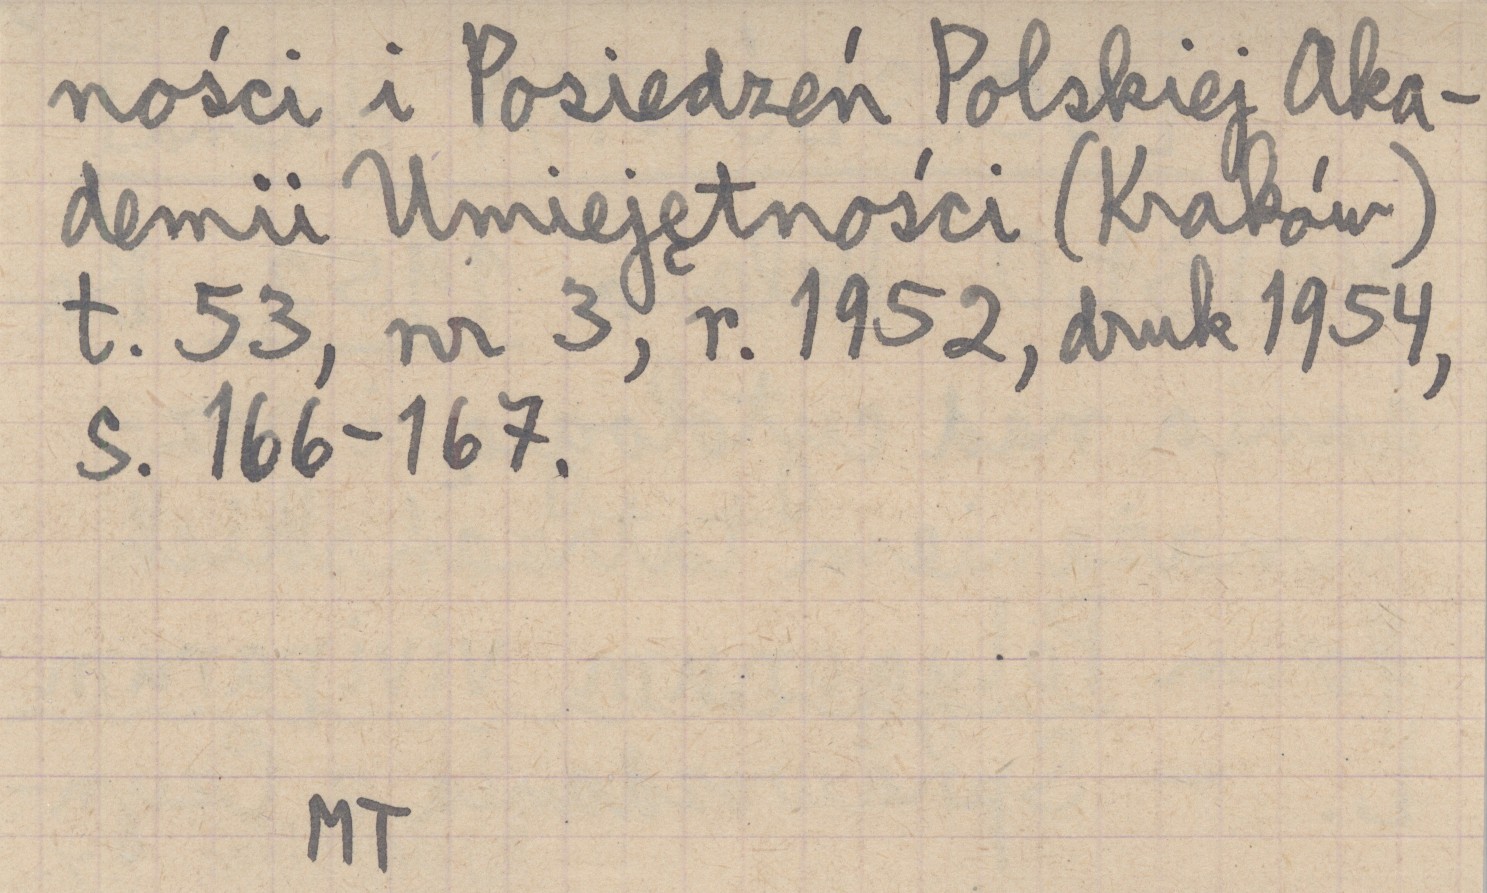 ności i Posiedzeń Polskiej Aka-
demii Umiejętności (Kraków)
t. 53, nr 3, r. 1952, druk 1954,
s. 166-167.
MT